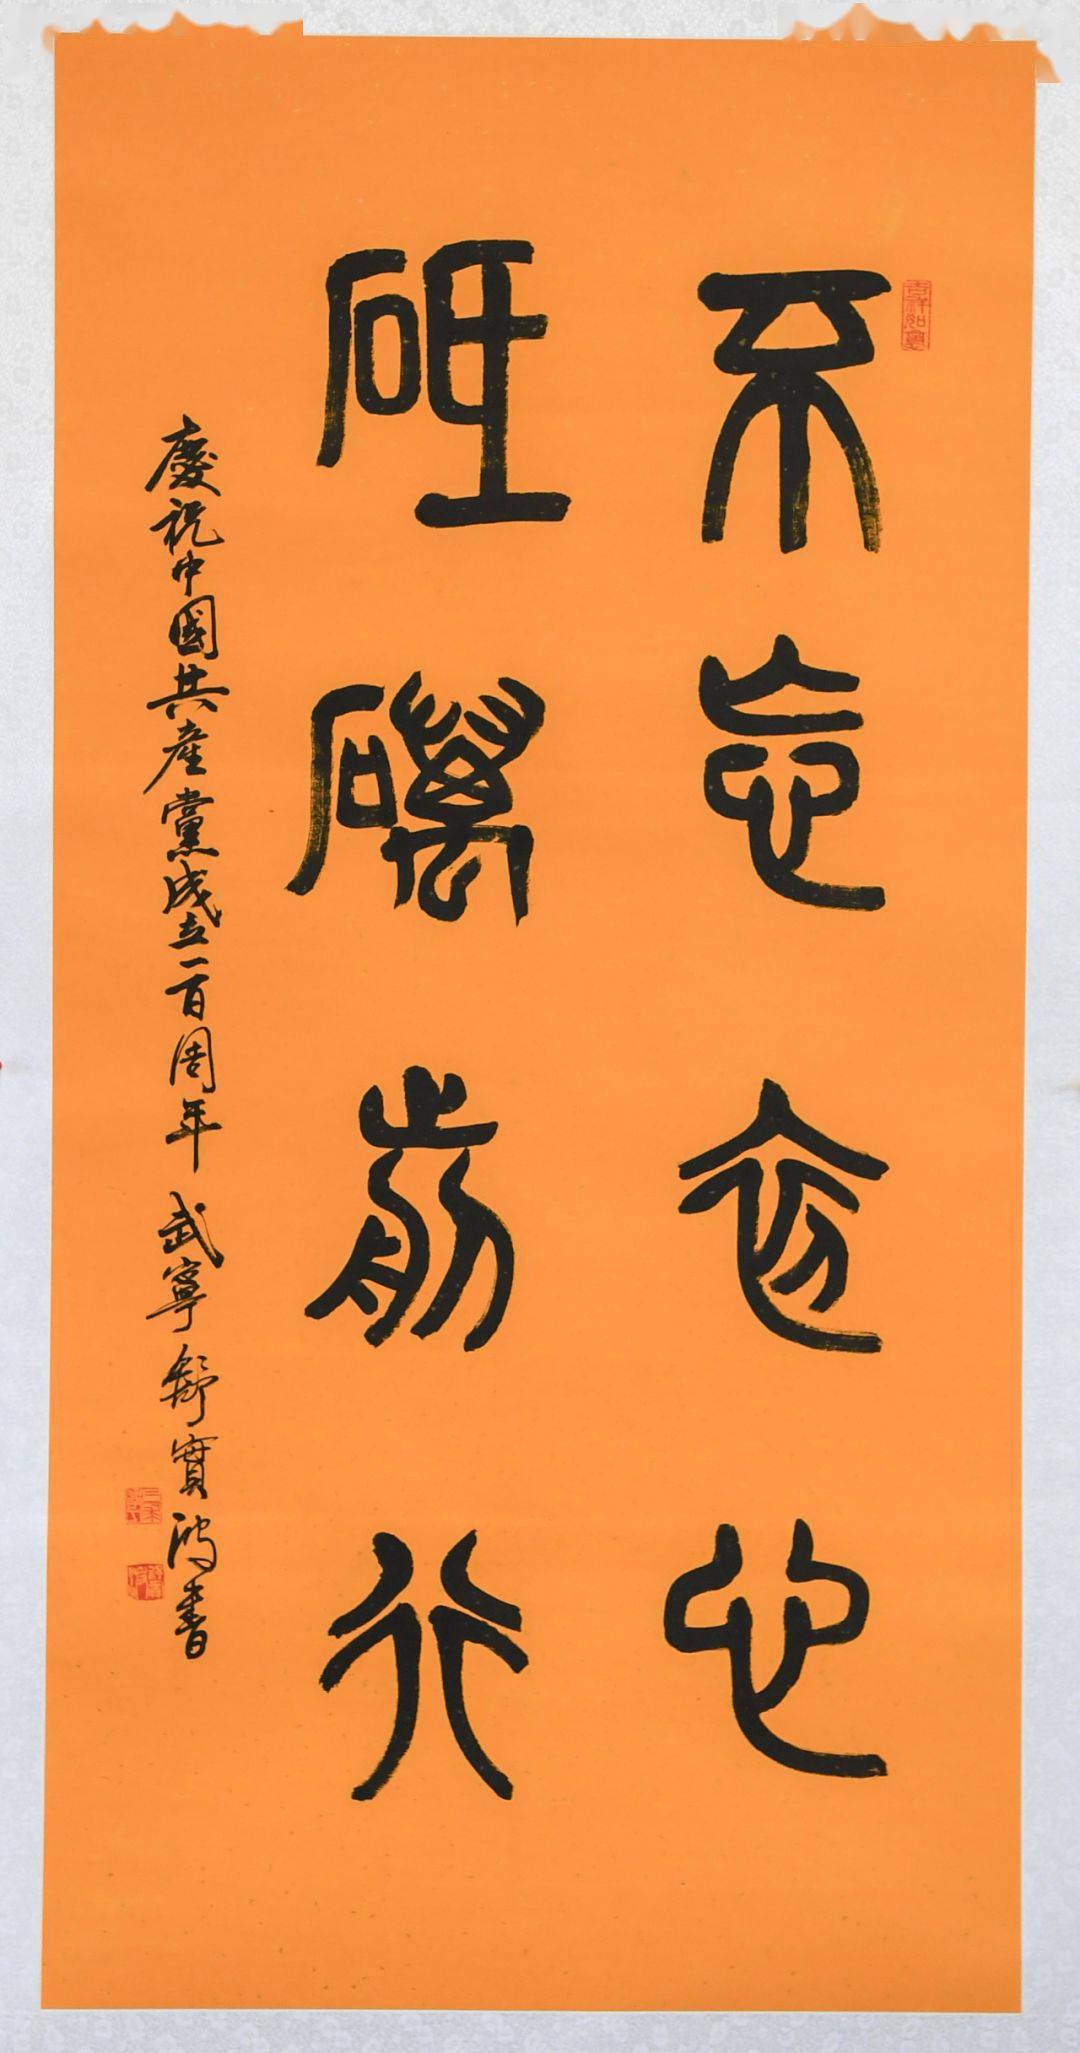 不忘初心
砥礪前行
慶祝中國共產黨成立一百周年 武寧舒寶鴻書
吉祥如意